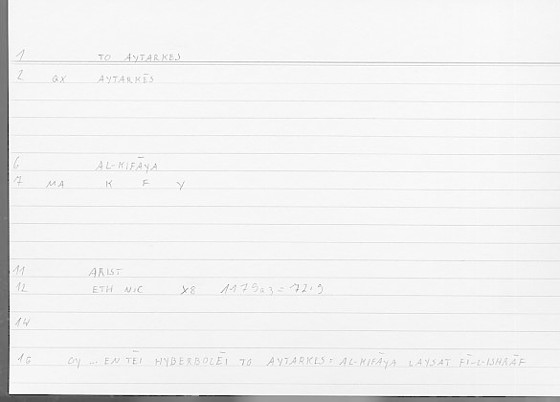 1 TO AYTARKES
2 GX AYTARKĒS
6 AL-KIFĀYA
7 MA K F Y
11 ARIST
12 ETH NIC X8 1179a3 = 72.9
14
16 OY ... EN TĒI HYBERBOLĒI TO AYTARKES = AL-KIFĀYA LAYSAT FĪ-L-ISHRĀF